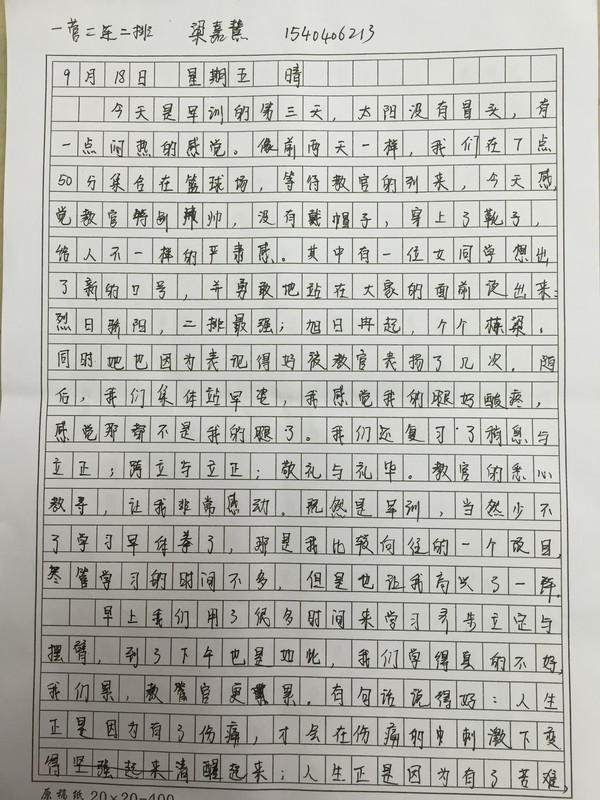 一营二连二排 梁嘉慧 1540406213
9月18日 星期五 晴
今天是军训的第三天，太阳没有冒头，有
一点闷热的感觉。像前两天一样，我们在7点
50分集合在篮球场，等待教官的到来，今天感
觉教官特别帅，没有戴帽子，穿上了靴子，
给人不一样的严肃感。其中有一位女同学想出
了新的口号，并勇敢地站在大家的面前说出来：
烈日骄阳，二排最强；旭日冉起，个个栋梁。
同时她也因为表现得好被教官表扬了几次。随
后，我们集体站军姿，我感觉我的腿好酸疼，
感觉那都不是我的腿了。我们还复习了稍息与
立正；跨立与立正；敬礼与礼毕。教官的悉心
教导，让我非常感动。既然是军训，当然少不
了学习军体拳了，那是我比较向往的一个项目，
尽管学习的时间不多，但是也让我高兴了一阵。
早上我们用了很多时间来学习齐步立定与
摆臂，到了下午也是如此，我们学得真的不好，
我们累，教官更累。有句话说得好：人生
正是因为有了伤痛，才会在伤痛的刺激下变
得清醒起来；人生正是因为有了苦难，
原稿纸 20×20=400